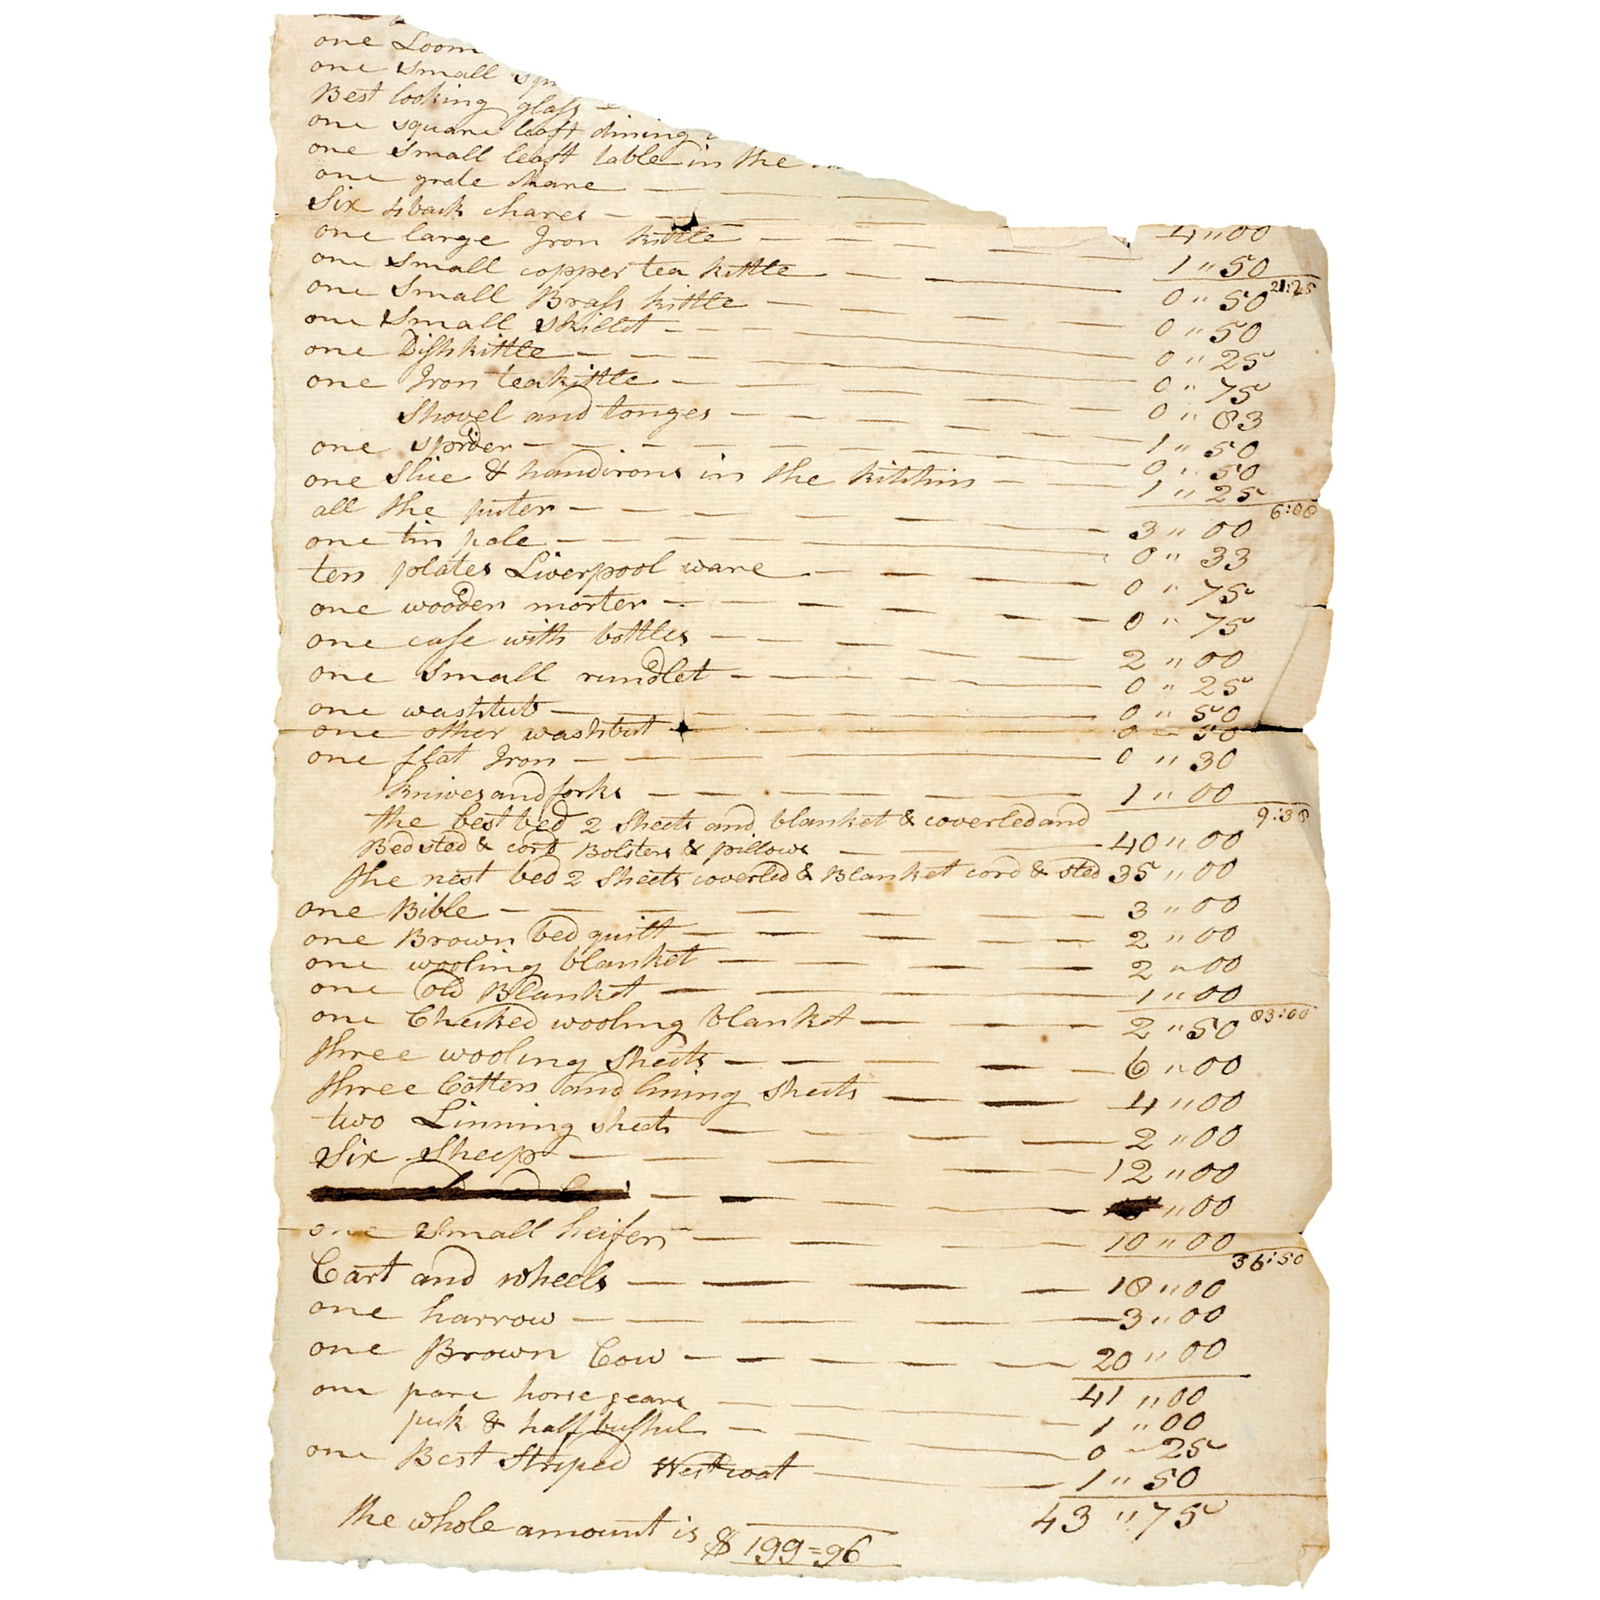 one Loom
one small
Best looking glass
one square leaft dining
one small leaft table in the
one grate chare
Six 4 back chares
one large Iron kittle 4 " 00
one small copper tea kittle 1 " 50
21:25
one small Brass kittle 0 " 50
one small skillet 0 " 50
one Dish kittle 0 " 25
one Iron teakittle 0 " 75
Shovel and tonges 0 " 83
one spider 1 " 50
0 " 50
one slice & handirons in the kitchin 1 " 25
6:08
all the puter 3 " 00
one tin pale 0 " 33
ten plates Liverpool ware 0 " 75
one wooden morter 0 " 75
one case with bottles 2 " 00
one small rundlet 0 " 25
one washtub 0 " 50
one other washtut 0 = 50
one flat Iron 0 " 30
knives and forks 1 " 00
9:38
the best bed 2 sheets and blanket & coverled and
Bedsted & cord Bolsters & pillows 40 " 00
the nest bed 2 sheets coverled & Blanket cord & sted 35 " 00
one Bible 3 " 00
one Brown bed quilt 2 " 00
one wooling blanket 2 " 00
one old Blanket 1 " 00
83:00
one Checked wooling blanket 2 " 50
three wooling sheets 6 " 00
three Cotten and lining sheets 4 " 00
two Linning sheets 2 " 00
Six sheep 12 " 00
" 00
one small heifer 10 " 00
36:50
Cart and wheels 18 " 00
one harrow 3 " 00
one Brown Cow 20 " 00
41 " 00
one pare horse geare 1 " 00
peck & half bushel 0 - 25
one Best Striped Westcoat 1 " 50
43 " 75
the whole amount is $ 199=96